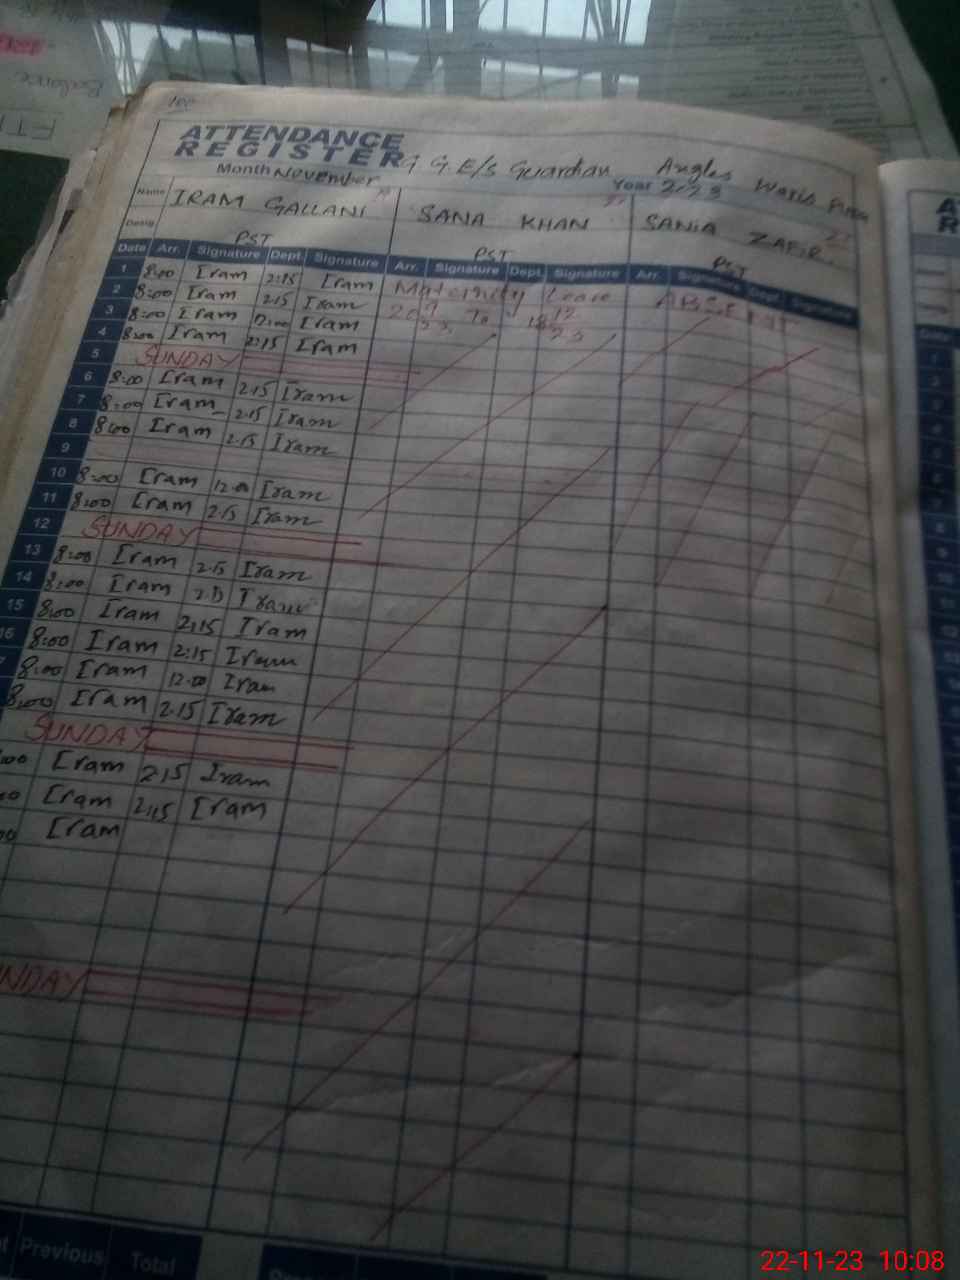 100
ATTENDANCE
REGISTER G G.E/s Guardian Angles Waris Pura
Month November Year 2023
Name IRAM GALLANI SANA KHAN SANIA ZAFIR
Desig. PST PST PST
Date Arr. Signature Dept. Signature Arr. Signature Dept. Signature Arr. Signature Dept. Signature
1 8:00 Iram 2:15 Iram Maternity Leave ABSENT
2 8:00 Iram 2:15 Iram 20 9 23 To 18 12 23
3 8:00 Iram 12:00 Iram
4 8:00 Iram 2:15 Iram
5 SUNDAY
6 8:00 Iram 2:15 Iram
7 8:00 Iram 2:15 Iram
8 8:00 Iram 2:15 Iram
9
10 8:00 Iram 12:00 Iram
11 8:00 Iram 2:15 Iram
12 SUNDAY
13 8:00 Iram 2:15 Iram
14 8:00 Iram 2:15 Iram
15 8:00 Iram 2:15 Iram
16 8:00 Iram 2:15 Iram
8:00 Iram 12:00 Iram
8:00 Iram 2:15 Iram
SUNDAY
00 Iram 2:15 Iram
00 Iram 2:15 Iram
00 Iram
NDAY
Previous Total
22-11-23 10:08